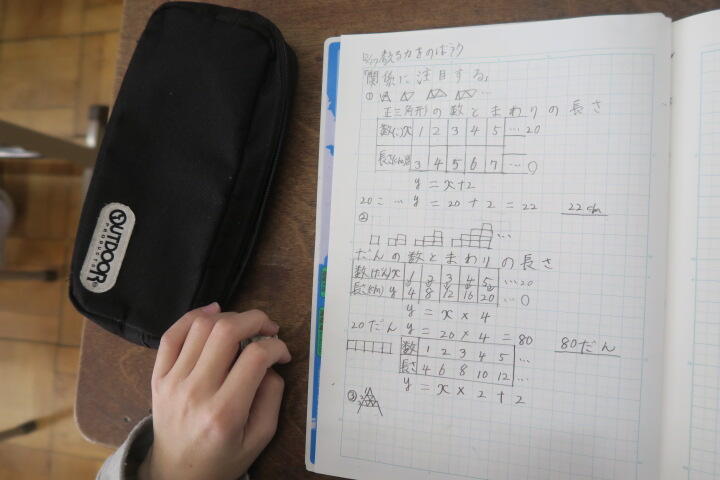 OUTDOOR
PRODUCTS
考える力をのばそう
「関係に注目する」
①
正三角形の数とまわりの長さ
数(こ)x 1 2 3 4 5 … 20
長さ(cm)y 3 4 5 6 7 … ○
y = x + 2
20こ … y = 20 + 2 = 22 22cm
②
だんの数とまわりの長さ
数(だん)x 1 2 3 4 5 … 20
長さ(cm) y 4 8 12 16 20 … ○
y = x × 4
20だん y = 20 × 4 = 80 80だん
数 1 2 3 4 5 …
長さ 4 6 8 10 12 …
y = x × 2 + 2
③